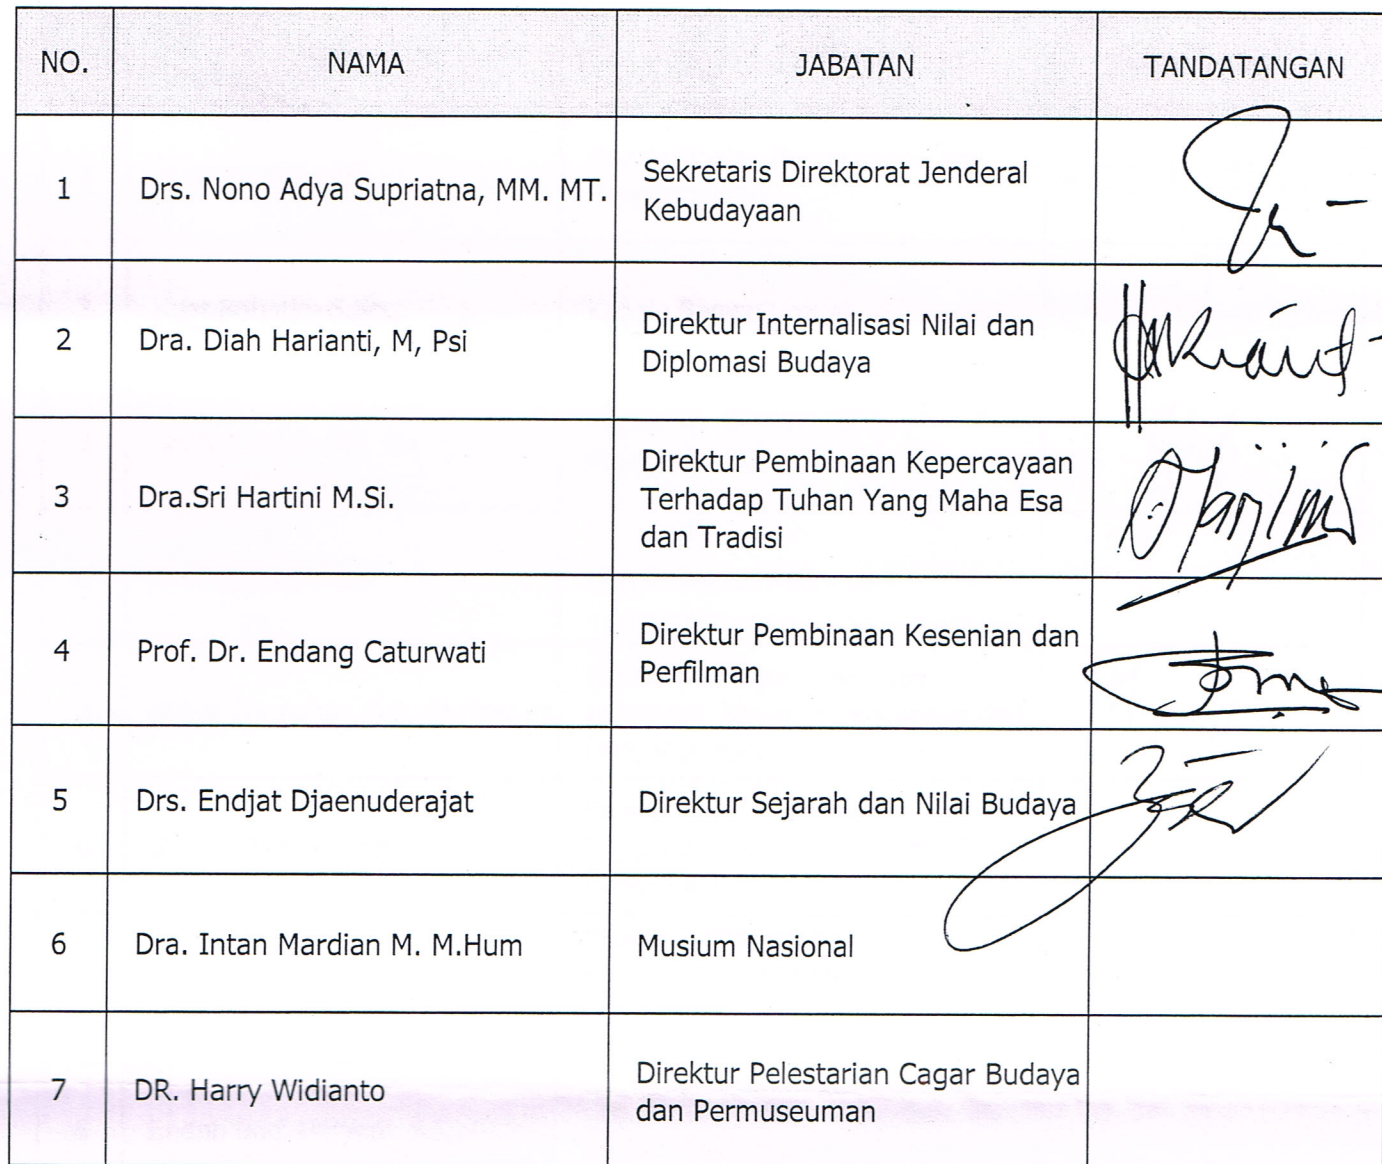 NO. NAMA JABATAN TANDATANGAN
1 Drs. Nono Adya Supriatna, MM. MT. Sekretaris Direktorat Jenderal
Kebudayaan
2 Dra. Diah Harianti, M, Psi Direktur Internalisasi Nilai dan
Diplomasi Budaya
3 Dra.Sri Hartini M.Si. Direktur Pembinaan Kepercayaan
Terhadap Tuhan Yang Maha Esa
dan Tradisi
4 Prof. Dr. Endang Caturwati Direktur Pembinaan Kesenian dan
Perfilman
5 Drs. Endjat Djaenuderajat Direktur Sejarah dan Nilai Budaya
6 Dra. Intan Mardian M. M.Hum Musium Nasional
7 DR. Harry Widianto Direktur Pelestarian Cagar Budaya
dan Permuseuman